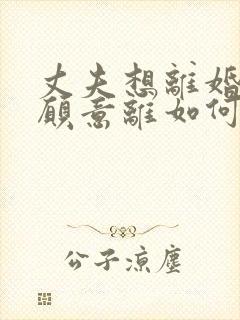 丈夫想離婚
願意離如何
公子涼塵